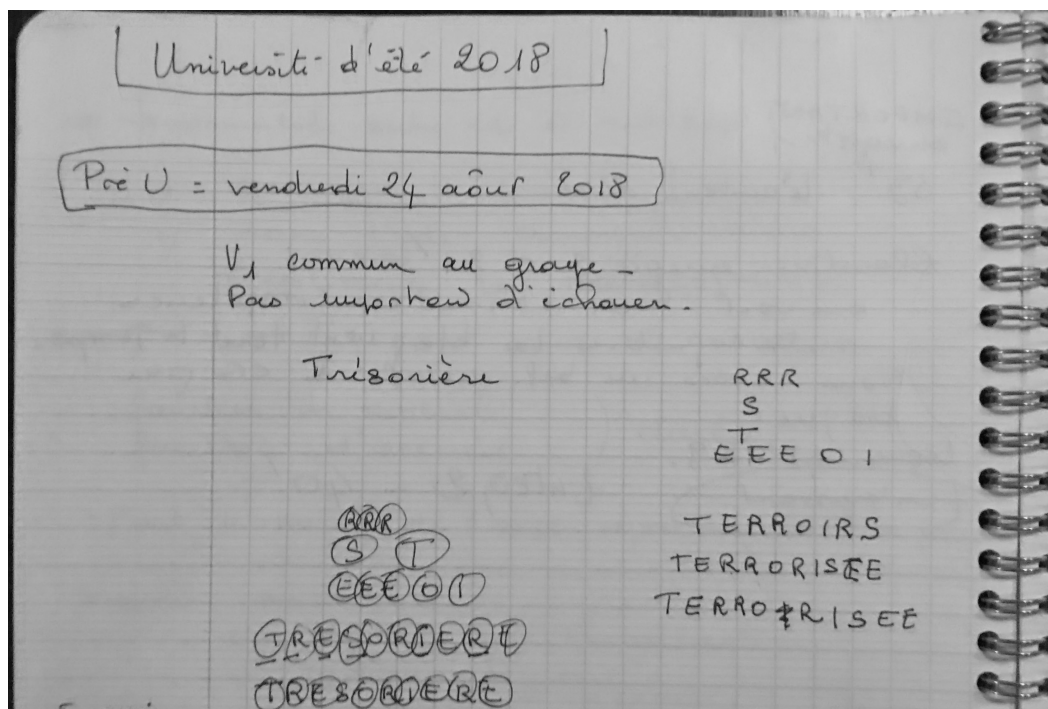 Université d'été 2018
Pré U = vendredi 24 août 2018
V1 commun au groupe -
Pas important d'échouer.
Trésorière
RRR
S
T
EEE O I
RRR
S T
EEEOI
TRESORIERE
TRESORIERE
TERROIRS
TERRORISEE
TERRORISEE